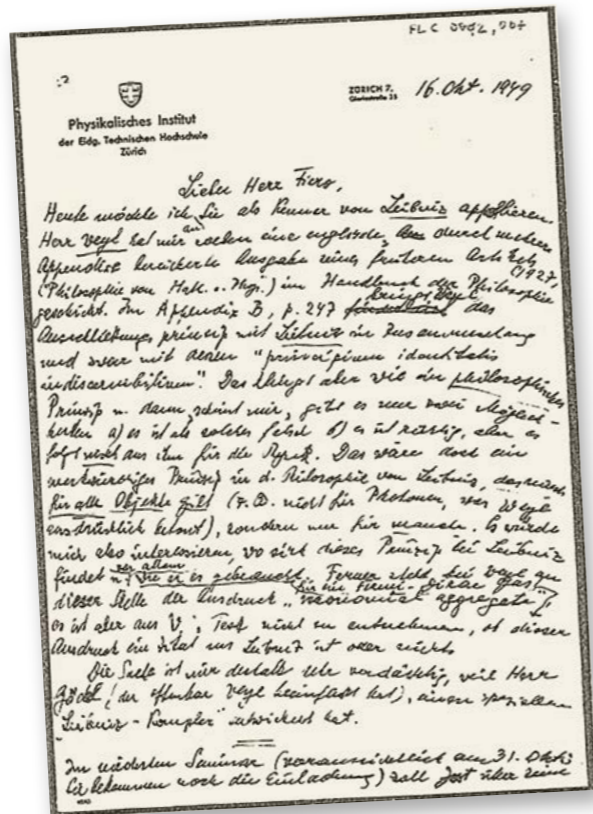 FLC
Physikalisches Institut
der Eidg. Technischen Hochschule
Zürich
ZÜRICH 7,
Gloriastraße 35
16. Okt. 1949
Lieber Herr Fierz,
Heute möchte ich Sie als Kenner von Leibniz appellieren.
Herr Weyl hat mir soeben eine englische, durch mehrere
Appendices bereicherte Ausgabe eines früheren Artikels
(1927,
(Philosophie von Math. u. Phys.) im Handbuch der Philosophie
geschickt. Im Appendix B, p. 247 bringt Weyl das
Ausschließungsprinzip mit Leibniz in Zusammenhang
und zwar mit dessen "principium identitatis
indiscernibilium". Das klingt aber wie ein philosophisches
Prinzip u. dann, scheint mir, gibt es nur zwei Möglich-
keiten a) es ist als solches falsch b) es ist richtig, aber es
folgt nichts aus ihm für die Physik. Das wäre doch ein
merkwürdiges Prinzip in d. Philosophie von Leibniz, das nicht
für alle Objekte gilt (z.B. nicht für Photonen, was Weyl
ausdrücklich betont), sondern nur für manche. Es würde
mich also interessieren, wo sich dieses Prinzip bei Leibniz
findet u. vor allem wie er es gebraucht. Ferner steht bei Weyl an
dieser Stelle der Ausdruck
für ein Fermi-Dirac Gas
aggregate"
es ist aber aus W's Text nicht zu entnehmen, ob dieser
Ausdruck ein Zitat aus Leibniz ist oder nicht.
Die Stelle ist mir deshalb sehr verdächtig, weil Herr
Gödel (der offenbar Weyl beeinflußt hat), einen speziellen
"Leibniz-Komplex" entwickelt hat.
Im nächsten Seminar (voraussichtlich am 31. Okt.
Sie bekommen noch die Einladung) soll Jost über seine